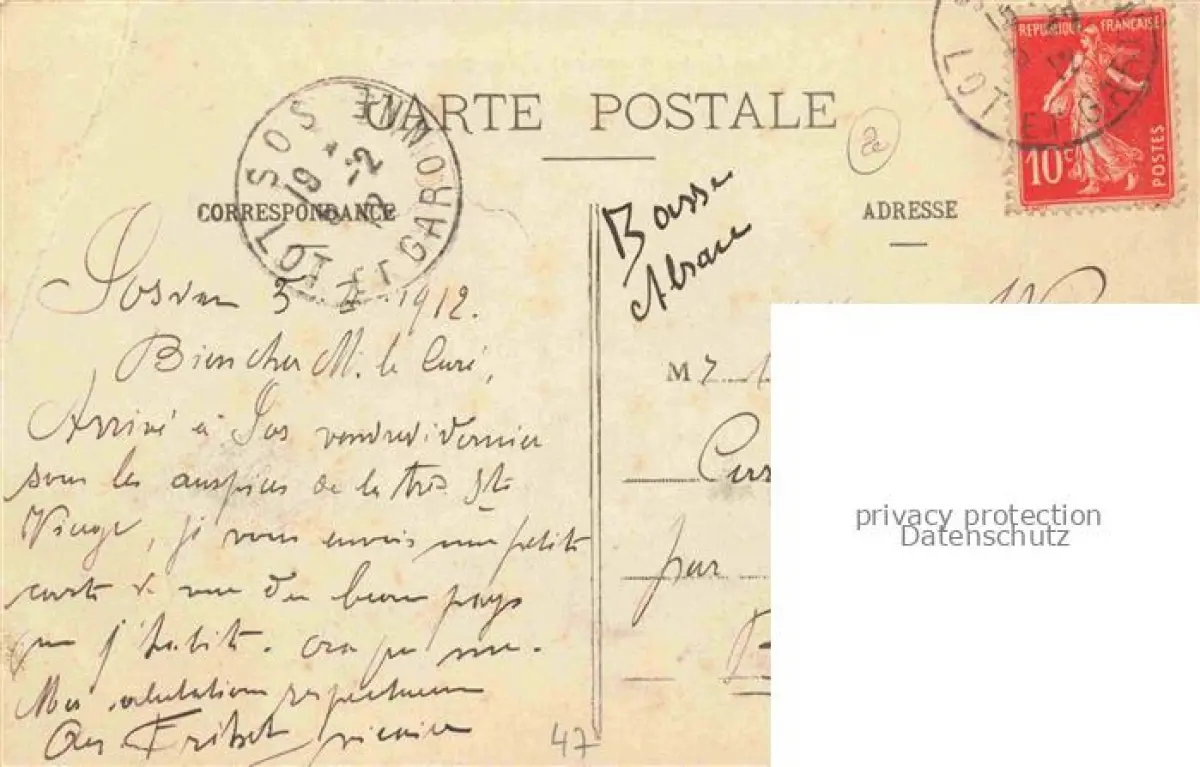 CARTE POSTALE
CORRESPONDANCE
ADRESSE
SOS
LOT ET GARONNE
19
-2
12
LOT ET GAR
REPUBLIQUE FRANÇAISE
10c
POSTES
2e
Basse
Alsace
3 1912.
Bien cher M. le Curé,
Arrivé à Sos vendredi dernier
sous les auspices de la très Ste
Vierge, je vous envois une petite
carte de vue du beau pays
que j'habite. Ora pro me.
Mes salutations respectueuses
Fritsch vicaire
47
M
par
privacy protection
Datenschutz